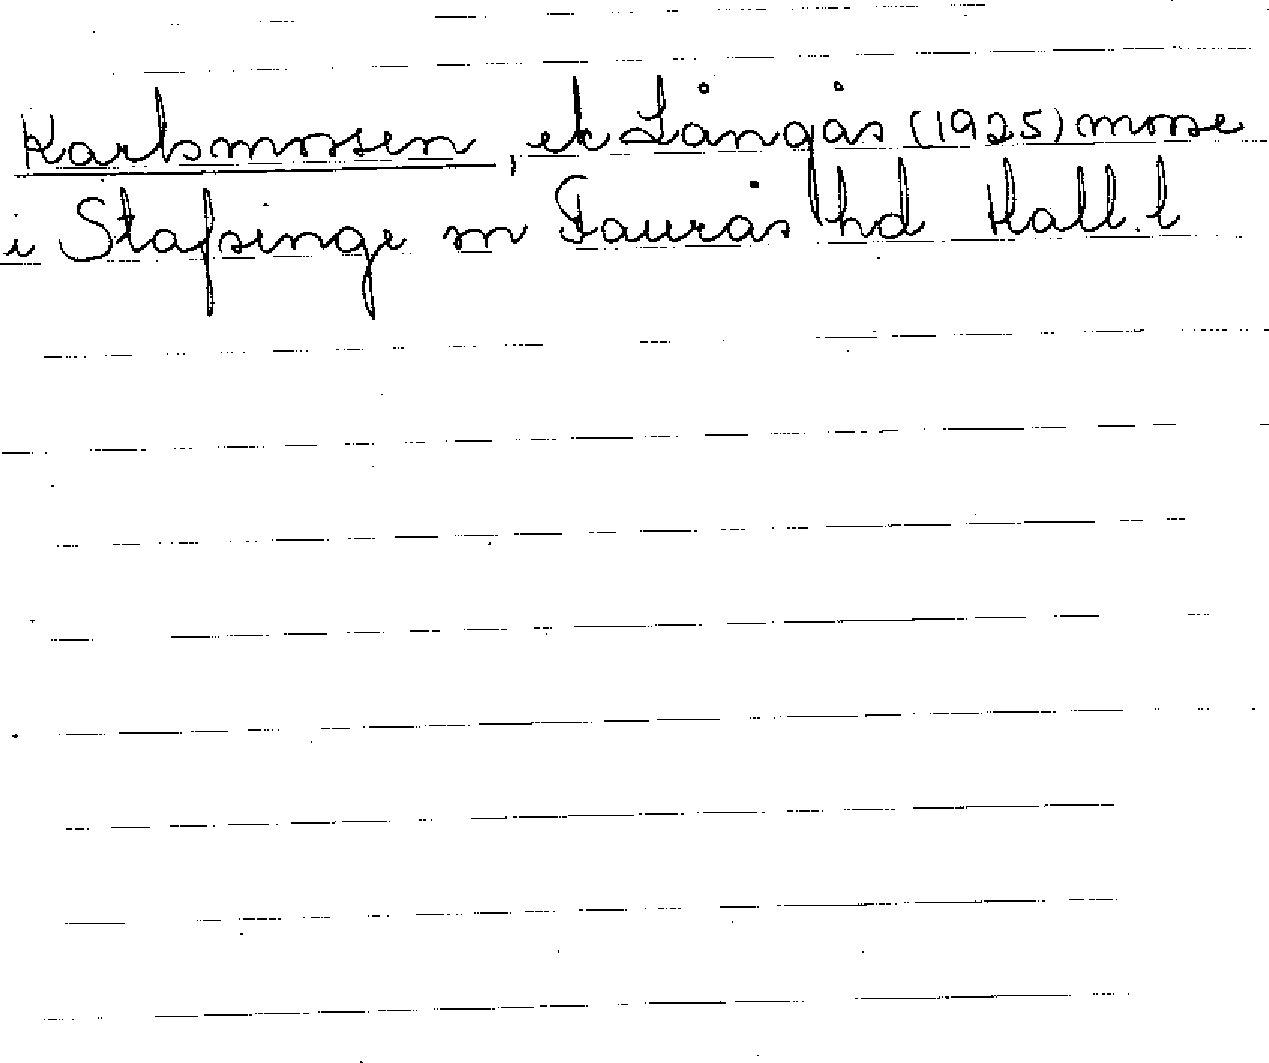 Karlsmossen, ek Långås (1925) mosse
i Stafsinge sn Faurås hd Hall. l